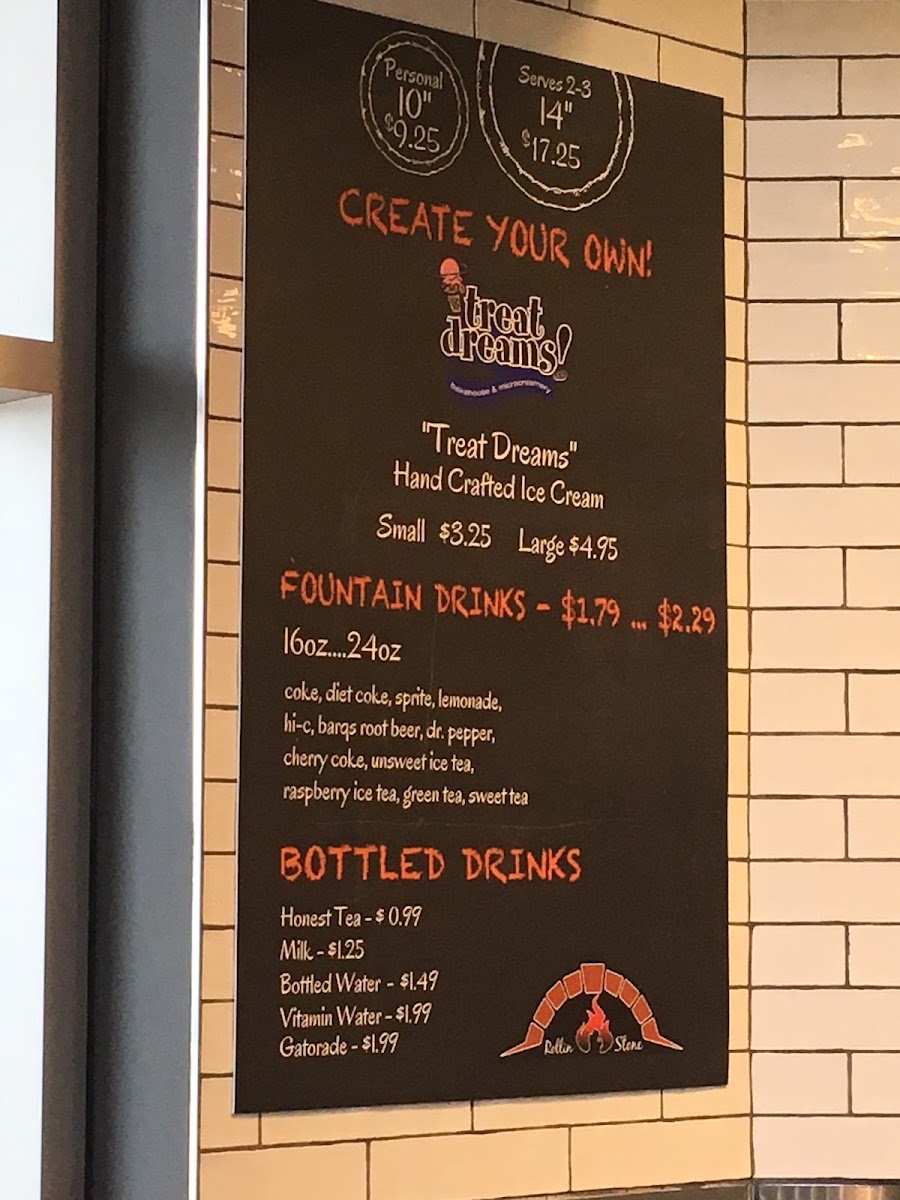 Personal
10"
$9.25
Serves 2-3
14"
$17.25
CREATE YOUR OWN!
treat
dreams!
bakehouse & microcreamery
"Treat Dreams"
Hand Crafted Ice Cream
Small $3.25 Large $4.95
FOUNTAIN DRINKS - $1.79 ... $2.29
16oz....24oz
coke, diet coke, sprite, lemonade,
hi-c, barqs root beer, dr. pepper,
cherry coke, unsweet ice tea,
raspberry ice tea, green tea, sweet tea
BOTTLED DRINKS
Honest Tea - $ 0.99
Milk - $1.25
Bottled Water - $1.49
Vitamin Water - $1.99
Gatorade - $1.99
Rollin Stone